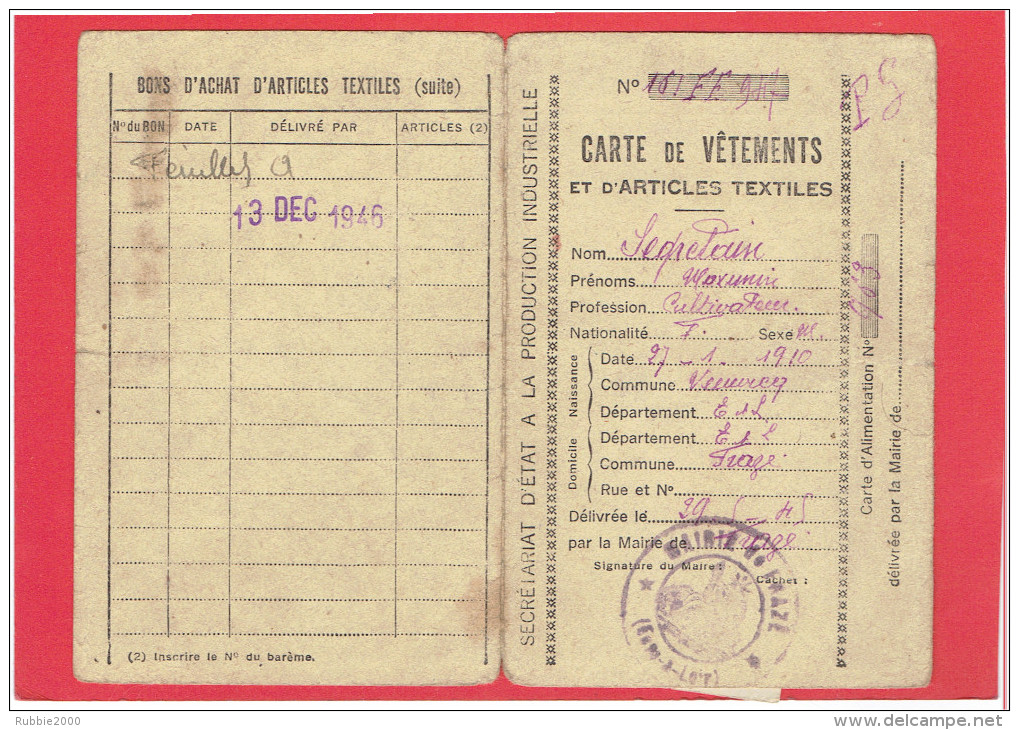 BONS D'ACHAT D'ARTICLES TEXTILES (suite)
Nº du BON DATE DÉLIVRÉ PAR ARTICLES (2)
Feuilles
13 DEC 1946
(2) Inscrire le Nº du barème.
SECRÉTARIAT D'ÉTAT A LA PRODUCTION INDUSTRIELLE
Nº
CARTE DE VÊTEMENTS
ET D'ARTICLES TEXTILES
Nom Segretain
Prénoms
Profession Cultivateur
Nationalité F. Sexe M.
Naissance
Date 27-1-1910
Commune
Département E & L
Domicile
Département E & L
Commune Frazé
Rue et Nº
Délivrée le 29-5-45
par la Mairie de Frazé
Signature du Maire :
Cachet :
MAIRIE DE FRAZÉ
(EURE-&-LOIR)
Carte d'Alimentation Nº
délivrée par la Mairie de
Rubbie2000
www.delcampe.net